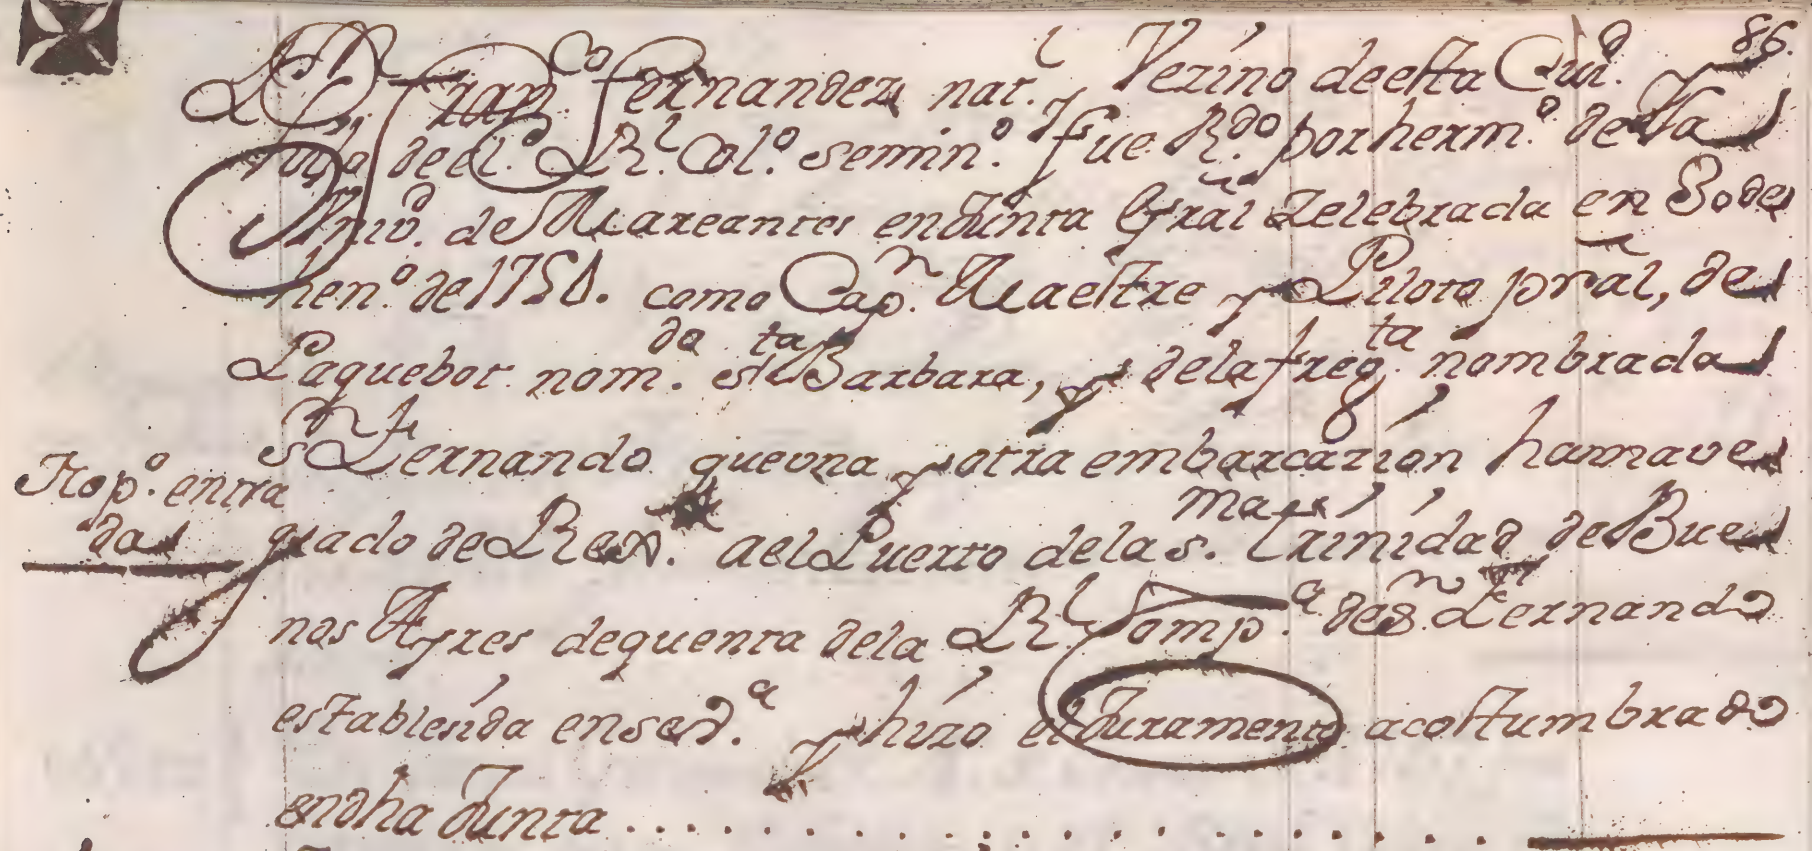 86.
Dn. Franco. Fernandez natl. y Vezino deesta Ciud.
hijo deel. Rl. Colo. semino. fue Rdo. por hermo. de la
Univd. de Mareantes en Junta Gral Zelebrada en 3o de
heno. de 1751. como Capn. Maestre y Piloto pral, de
Paquebot nomdo. sta Barbara, y dela fregta. nombrada
Sn Fernando que vna y otra embarcazión han nave
gado de Rexo. ael Puerto dela Sma. trinidad de Bue
nos Ayres de quenta dela Rl. Compa. de Sn. Fernando
establesida en Seva. y hizo el Juramento acostumbrado
en dha Junta . . . . . . . . . . . . . . . . .
No po. entra
da